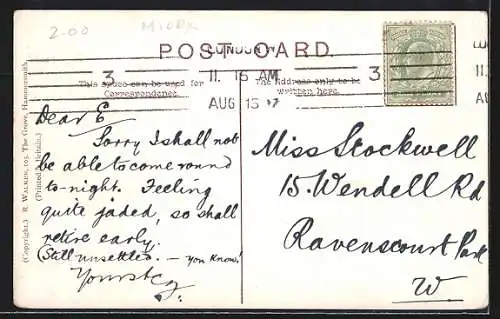 2-00
LONDON W
POST CARD.
3 11. 15 AM 3
AUG 15 07
This space can be used for
Correspondence.
The Address only to be
written here.
(Copyright.) R. WALKER, 103, The Grove, Hammersmith.
(Printed in Britain.)
Dear E
Sorry I shall not
be able to come round
to-night. Feeling
quite jaded, so shall
retire early.
(Still unsettled. — you know!
Miss Stockwell
15. Wendell Rd
Ravenscourt Park
W